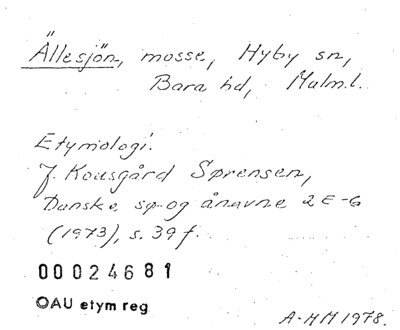 Ällesjön, mosse, Hyby sn,
Bara hd, Malm.l.
Etymologi.
J. Kousgård Sørensen,
Danske sø- og ånavne 2 E-G
(1973), s. 39 f.
00024681
OAU etym reg
A-HM 1978.